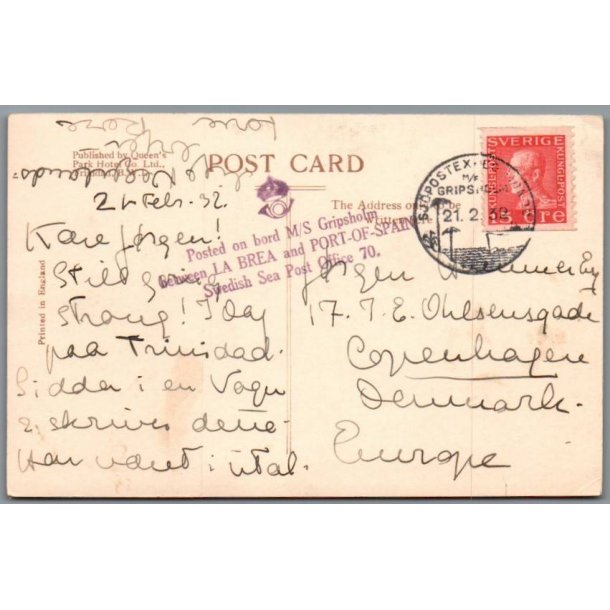 Published by Queen's
Park Hotel Co Ltd.,
POST CARD
The Address only to be
Written
Printed in England
21 Febr. 32.
Kære Jørgen!
Still going
strong! I dag
paa Trinidad.
Sidder i en Vogn
& skriver dette.
Har været i utal.
Posted on bord M/S Gripsholm
between LA BREA and PORT-OF-SPAIN
Swedish Sea Post Office 70.
SJÖPOSTEXP.
M/F
GRIPSHOLM
21.2.32
SVERIGE
KUNGL.POST
15 ÖRE
Jørgen
17. J.E. Ohlsensgade
Copenhagen
Denmark.
Europe